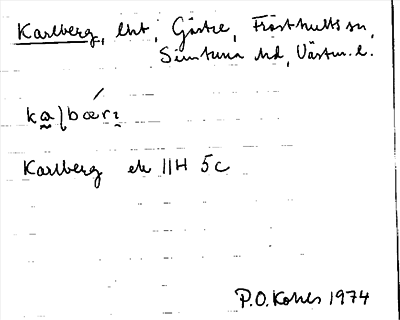 Karlberg, lht, Gåstre, Frösthults sn,
Simtuna hd, Västm. l.
Karlberg ek 11H 5c
P.O. Kohls 1974